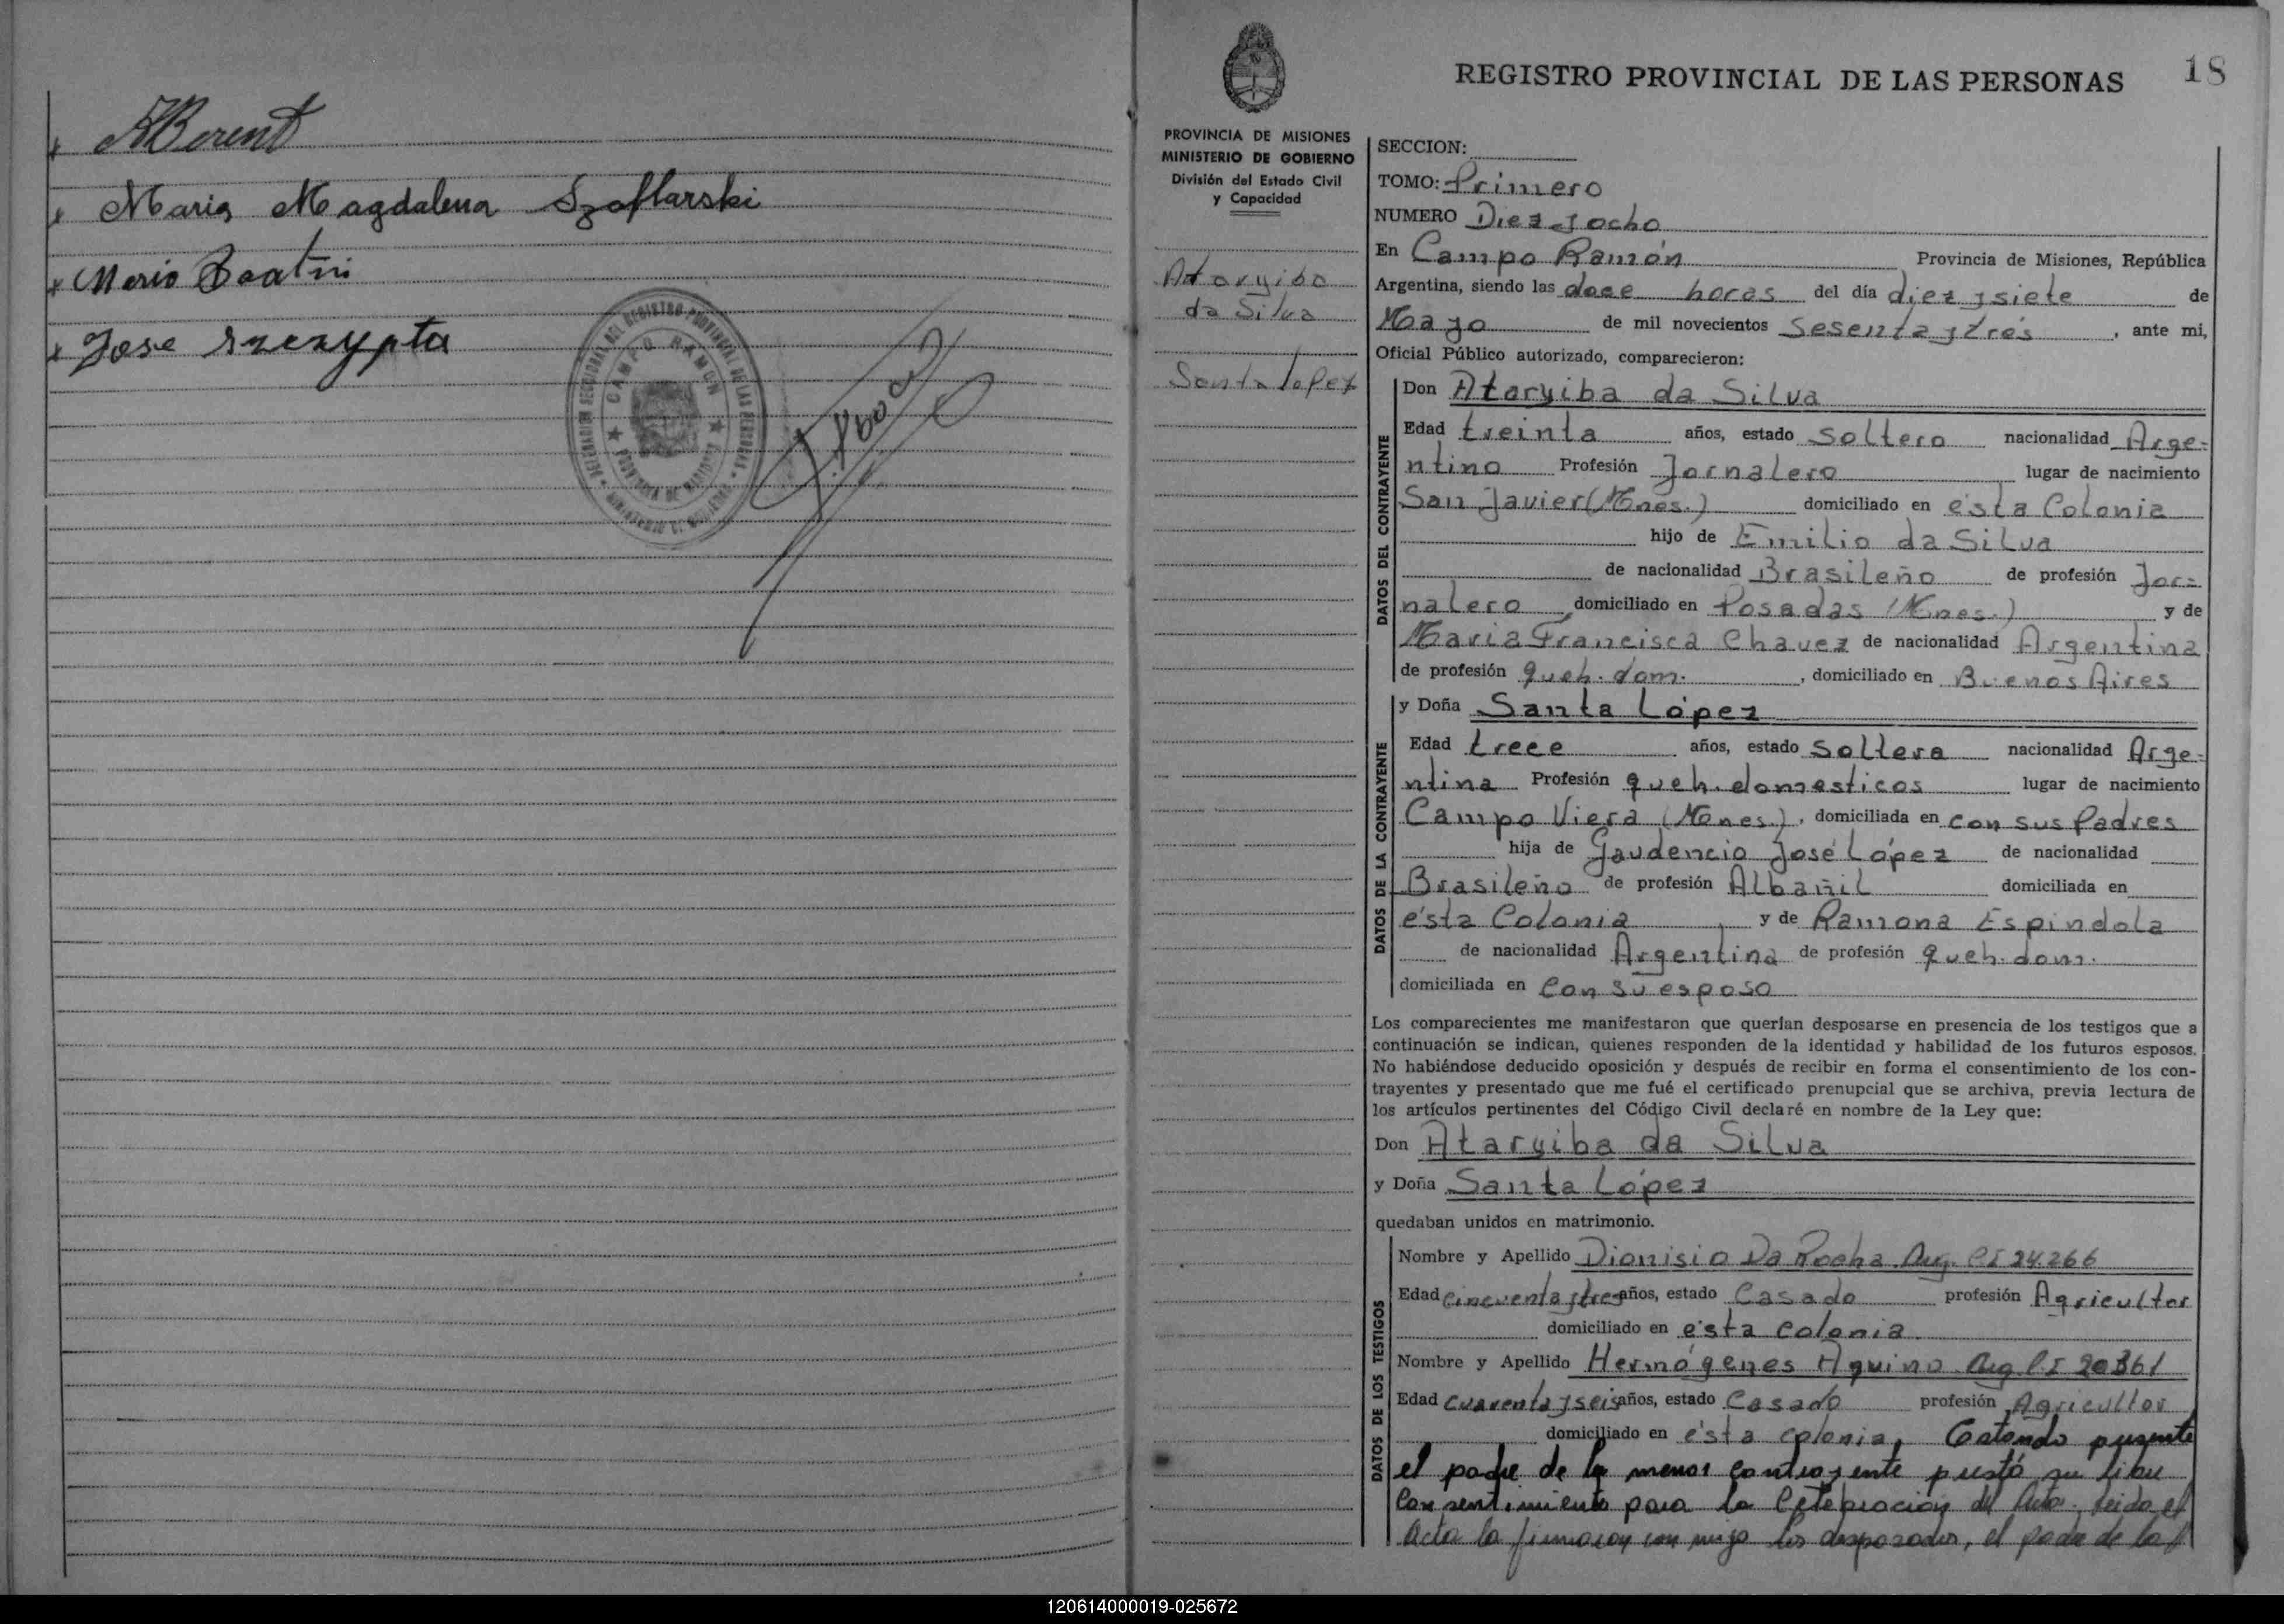 María Magdalena Szaflarski
Mario
Jose Szczypta
CAMPO RAMON
18
REGISTRO PROVINCIAL DE LAS PERSONAS
PROVINCIA DE MISIONES
MINISTERIO DE GOBIERNO
División del Estado Civil
y Capacidad
Ataryiba
da Silva
Santa Lopez
SECCION:
TOMO: Primero
NUMERO Diez y ocho
En Campo Ramón Provincia de Misiones, República
Argentina, siendo las doce horas del día diez y siete de
Mayo de mil novecientos Sesenta y trés, ante mi,
Oficial Público autorizado, comparecieron:
DATOS DEL CONTRAYENTE
Don Ataryiba da Silva
Edad treinta años, estado soltero nacionalidad Arge-
ntino Profesión Jornalero lugar de nacimiento
San Javier (Mnes.) domiciliado en ésta Colonia
hijo de Emilio da Silva
de nacionalidad Brasileño de profesión Jor=
nalero domiciliado en Posadas (Mnes.) y de
María Francisca Chavez de nacionalidad Argentina
de profesión queh. dom., domiciliado en Buenos Aires
DATOS DE LA CONTRAYENTE
y Doña Santa López
Edad trece años, estado Soltera nacionalidad Arge-
ntina Profesión queh. domesticos lugar de nacimiento
Campo Viera (Mnes.), domiciliada en con sus Padres
hija de Gaudencio José López de nacionalidad
Brasileño de profesión Albañil domiciliada en
ésta Colonia y de Ramona Espindola
de nacionalidad Argentina de profesión queh. dom.
domiciliada en Con su esposo
Los comparecientes me manifestaron que querían desposarse en presencia de los testigos que a
continuación se indican, quienes responden de la identidad y habilidad de los futuros esposos.
No habiéndose deducido oposición y después de recibir en forma el consentimiento de los con-
trayentes y presentado que me fué el certificado prenupcial que se archiva, previa lectura de
los artículos pertinentes del Código Civil declaré en nombre de la Ley que:
Don Ataryiba da Silva
y Doña Santa López
quedaban unidos en matrimonio.
DATOS DE LOS TESTIGOS
Nombre y Apellido Dionisio Da Rocha. Arg. CI 24.266
Edad cincuenta y tres años, estado Casado profesión Agricultor
domiciliado en ésta colonia
Nombre y Apellido Hermógenes Aquino Arg CI 20361
Edad cuarenta y seis años, estado Casado profesión Agricultor
domiciliado en ésta colonia, Estando presente
el padre de la menor contrayente prestó su libre
Consentimiento para la Celebración del Acto. Leida el
Acta la firmaron con migo los desposados, el padre de la
120614000019-025672